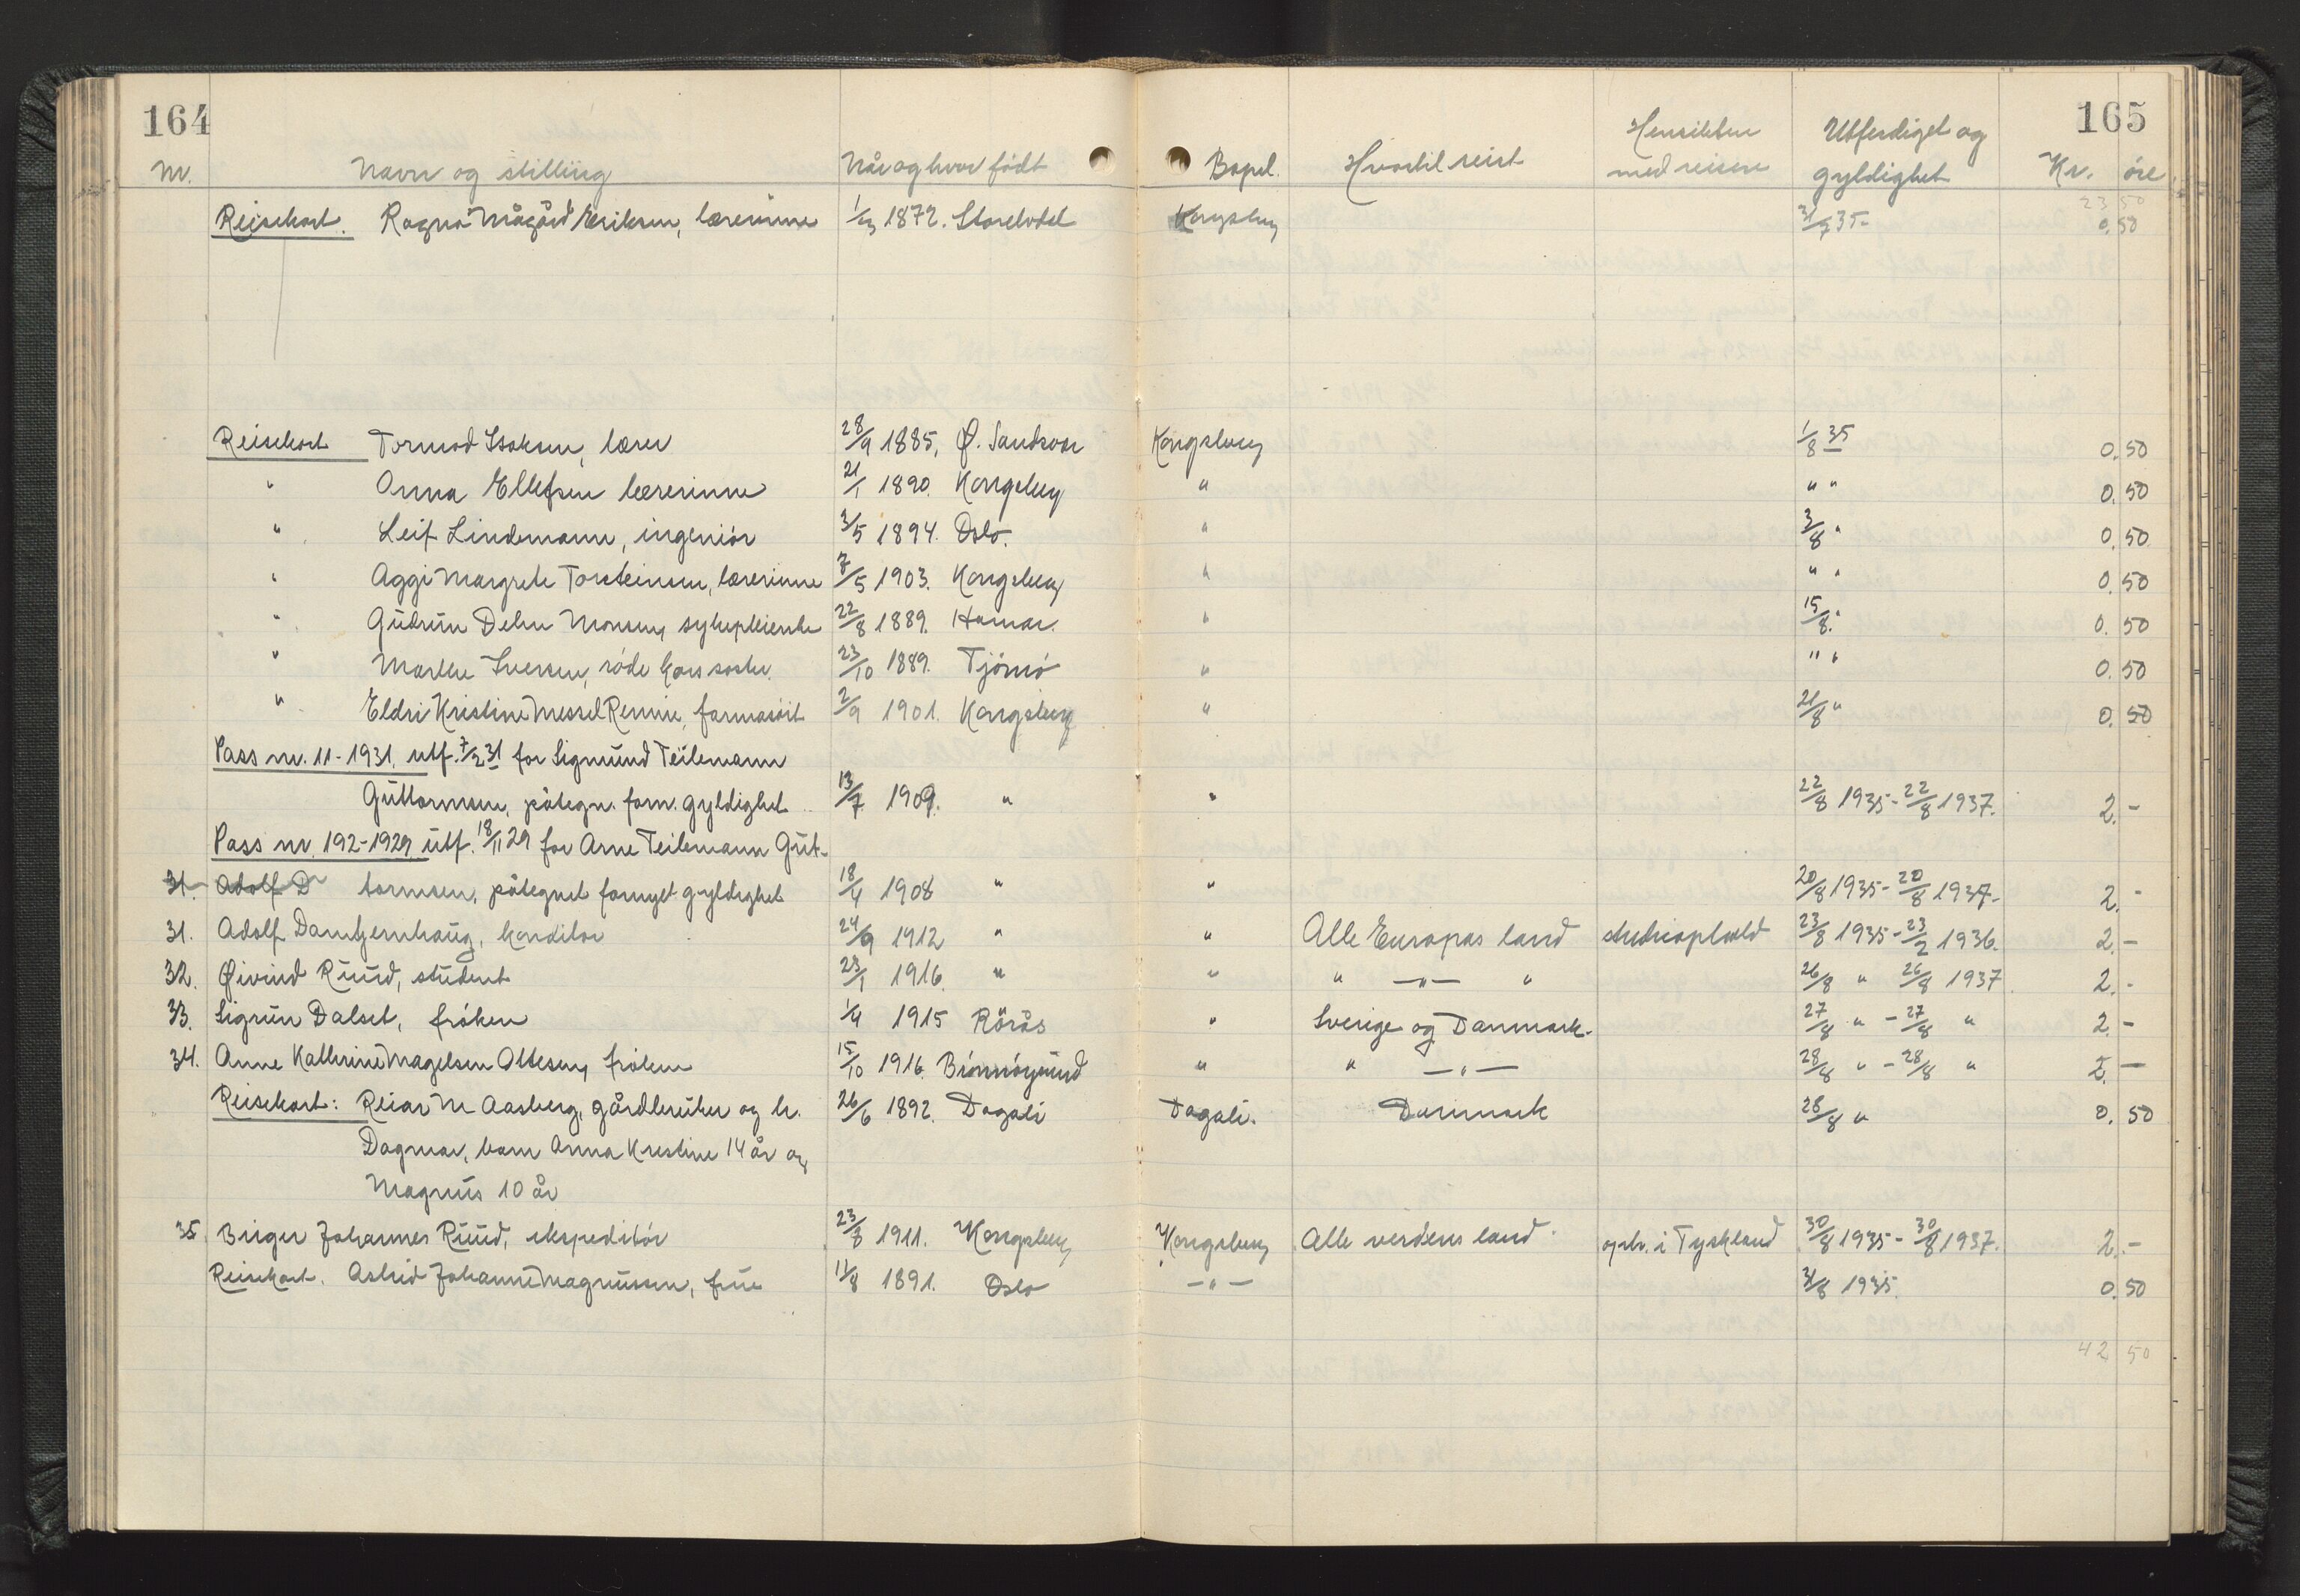 164 165
Nr. Navn og stilling Når og hvor født Bopel. Hvortil reist Hensikten med reisen Utferdiget og gyldighet Kr. øre
23 50
Reisekort. Ragna Eriksen, lærerinne 1/3 1872. Storelvdal Kongsberg 31/7 35- 0.50
Reisekort Tormod Isaksen, lærer 28/9 1885, Ø. Sandsvær Kongsberg 1/8 35 0.50
" Anna Ellefsen lærerinne 21/1 1890. Kongsberg " " " 0.50
" Leif Lindemann, ingeniör 3/5 1894. Oslo. " 3/8 " 0.50
" Aggi Margrete Torsteinsen, lærerinne 7/5 1903. Kongsberg " " " 0.50
" Gudrun Delin Monsen, sykepleierske 22/8 1889. Hamar. " 15/8. " 0.50
" Marthe Iversen, röde kors söster. 23/10 1889. Tjömö " " " 0.50
" Eldri Kristine Messel Rennie, farmasöit 2/9 1901. Kongsberg " 21/8 " 0.50
Pass nr. 11-1931. utf. 7/2 31 for Sigmund Teilemann
Guttormsen, påtegn. forn. gyldighet 13/7 1909. " " 22/8 1935-22/8 1937. 2.-
Pass nr. 192-1929 utf. 18/11 29 for Arne Teilemann Gut-
31. Adolf D tormsen, påtegnet fornyet gyldighet 18/4 1908 " " 20/8 1935-20/8 1937- 2.-
31. Adolf Dantzernhaug, konditor 24/9 1912 " " Alle Europas land studieophold 23/8 1935-23/2 1936. 2.-
32. Øivind Ruud, student 23/1 1916. " " " —"— " 26/8 " 26/8 1937 2.-
33. Sigrun Dalset, fröken 1/4 1915 Rörås " Sverige og Danmark. 27/8 " - 27/8 " 2.-
34. Anne Kathrine Magelsen Ottesen, fröken 15/10 1916. Brönnöysund " " —"— 28/8 " - 28/8 " 2.—
Reisekort: Reiar M Aasberg, gårdbruker og h. 26/6 1892. Dagali Dagali. Danmark 28/8 " 0.50
Dagmar, barn Anna Kristine 14 år og
Magnus 10 år
35. Birger Johannes Ruud, ekspeditör 23/8 1911. Kongsberg Kongsberg Alle verdens land. oph. i Tyskland 30/8 1935-30/8 1937. 2.-
Reisekort. Astrid Johanne Magnussen, frue 11/8 1891. Oslo —"— 31/8 1935. 0.50
42 50